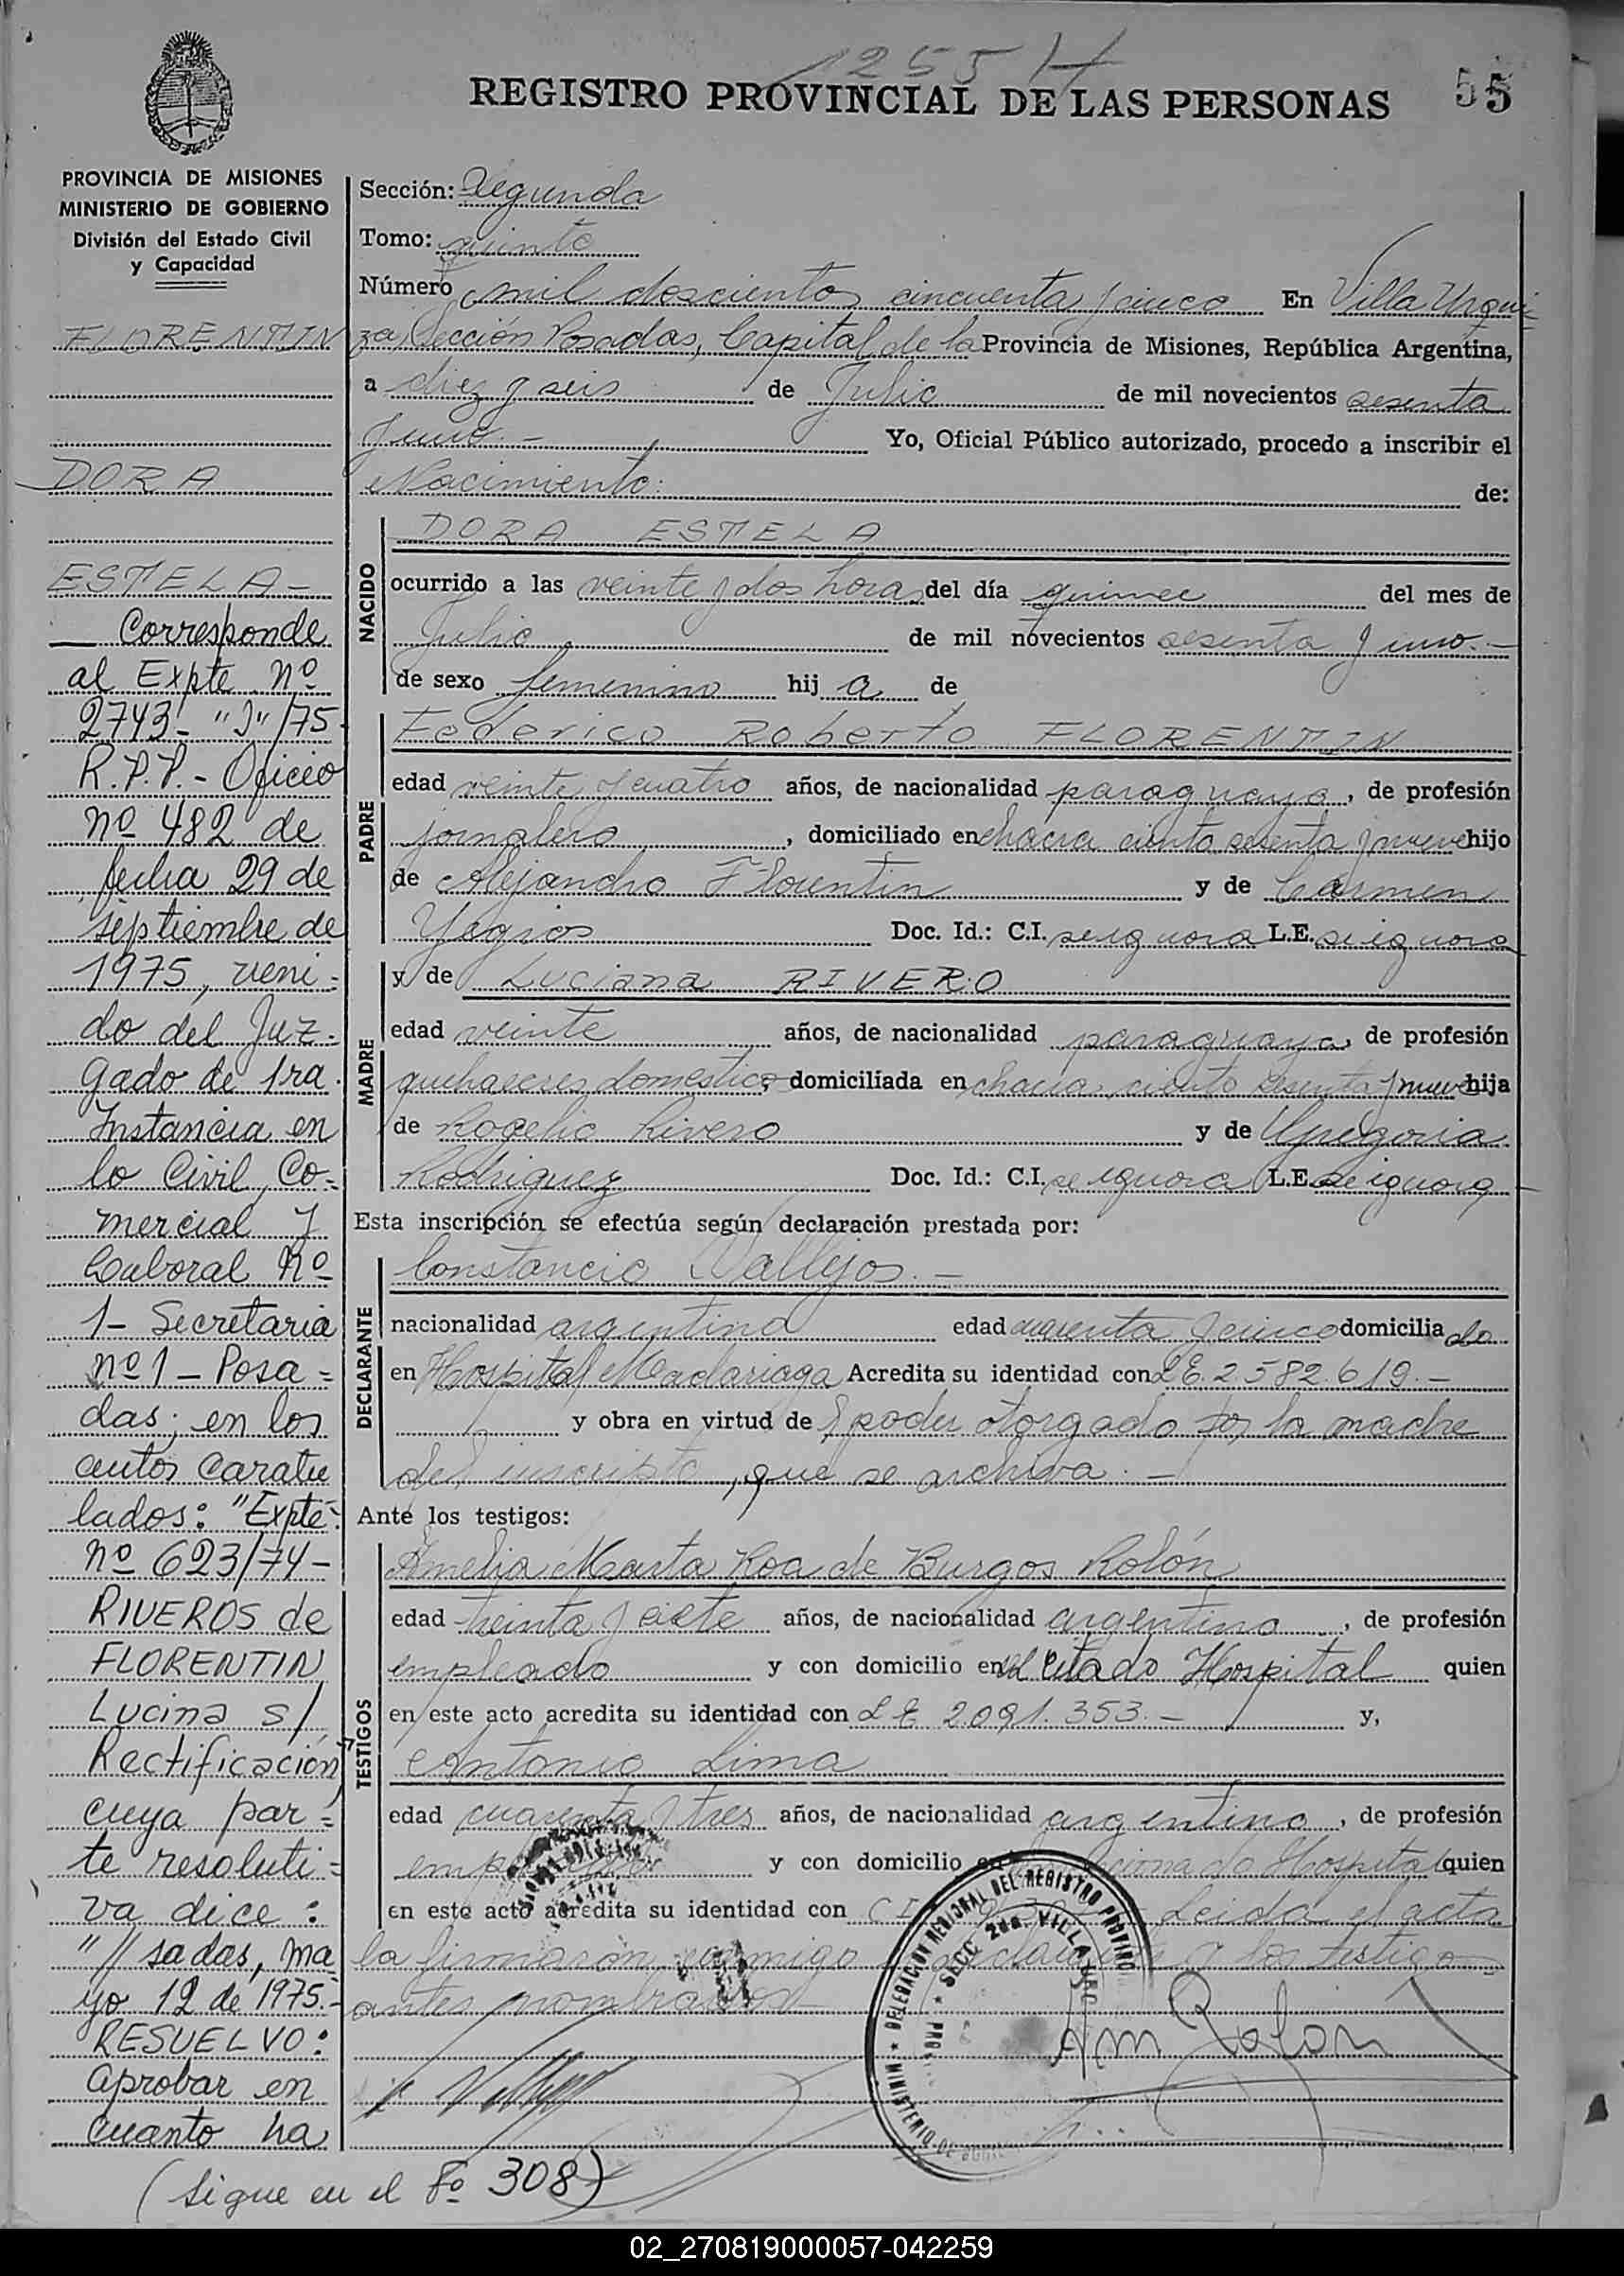 1255 H
REGISTRO PROVINCIAL DE LAS PERSONAS
55
PROVINCIA DE MISIONES
MINISTERIO DE GOBIERNO
División del Estado Civil
y Capacidad
FLORENTIN
DORA
ESTELA-
Corresponde
al Expte nº
2743- "J"/75-
R.P.P.- Oficio
nº 482 de
fecha 29 de
septiembre de
1975, veni=
do del Juz=
gado de 1ra.
Instancia en
lo Civil, Co=
mercial y
Laboral Nº
1- Secretaria
nº 1 - Posa=
das; en los
autos caratu
lados: "Expte=
nº 623/74-
RIVEROS de
FLORENTIN
Lucina s/
Rectificación,
cuya par=
te resoluti=
va dice:
"// sadas, ma
yo 12 de 1975.-
RESUELVO:
Aprobar en
cuanto ha
(Sigue en el Fº 308)
Sección: Segunda
Tomo: quinto
Número mil doscientos cincuenta y cinco En Villa Urqui=
za, Sección Posadas, Capital de la Provincia de Misiones, República Argentina,
a diez y seis de Julio de mil novecientos sesenta
y uno.- Yo, Oficial Público autorizado, procedo a inscribir el
Nacimiento: de:
NACIDO
DORA ESTELA
ocurrido a las veinte y dos horas del día quince del mes de
Julio de mil novecientos sesenta y uno.-
de sexo femenino hij a de
PADRE
Federico Roberto FLORENTIN
edad veinte y cuatro años, de nacionalidad paraguaya, de profesión
jornalero, domiciliado en chacra ciento sesenta y nueve hijo
de Alejandro Florentin y de Carmen
Yegros Doc. Id.: C.I. se ignora L.E. se ignora
MADRE
y de Luciana RIVERO
edad veinte años, de nacionalidad paraguaya, de profesión
quehaseres domestico, domiciliada en chacra ciento sesenta y nueve hija
de Rogelio Rivero y de
Rodriguez Doc. Id.: C.I. se ignora L.E. se ignora
Esta inscripción se efectúa según declaración prestada por:
DECLARANTE
Constancio Vallejos.-
nacionalidad argentino edad cuarenta y cinco domicilia do
en Hospital Madariaga Acredita su identidad con L.E. 2582.619.-
y obra en virtud de poder otorgado por la madre
del inscripto, que se archiva.-
Ante los testigos:
TESTIGOS
Amelia Marta Roa de Burgos Rolón
edad treinta y siete años, de nacionalidad argentina, de profesión
empleado y con domicilio en el citado Hospital quien
en este acto acredita su identidad con L E 2.091.353.- y,
Antonio Lima
edad cuarenta y tres años, de nacionalidad argentino, de profesión
y con domicilio Hospital quien
en este acto acredita su identidad con C I Leida el acta
la firmaron conmigo a los testigos
antes nombrados
DELEGACION REGIONAL DEL REGISTRO PROVINC
SECC 2da. VILLA URQ
MINISTERIO DE GOBIE
Am Rolon
02_270819000057-042259